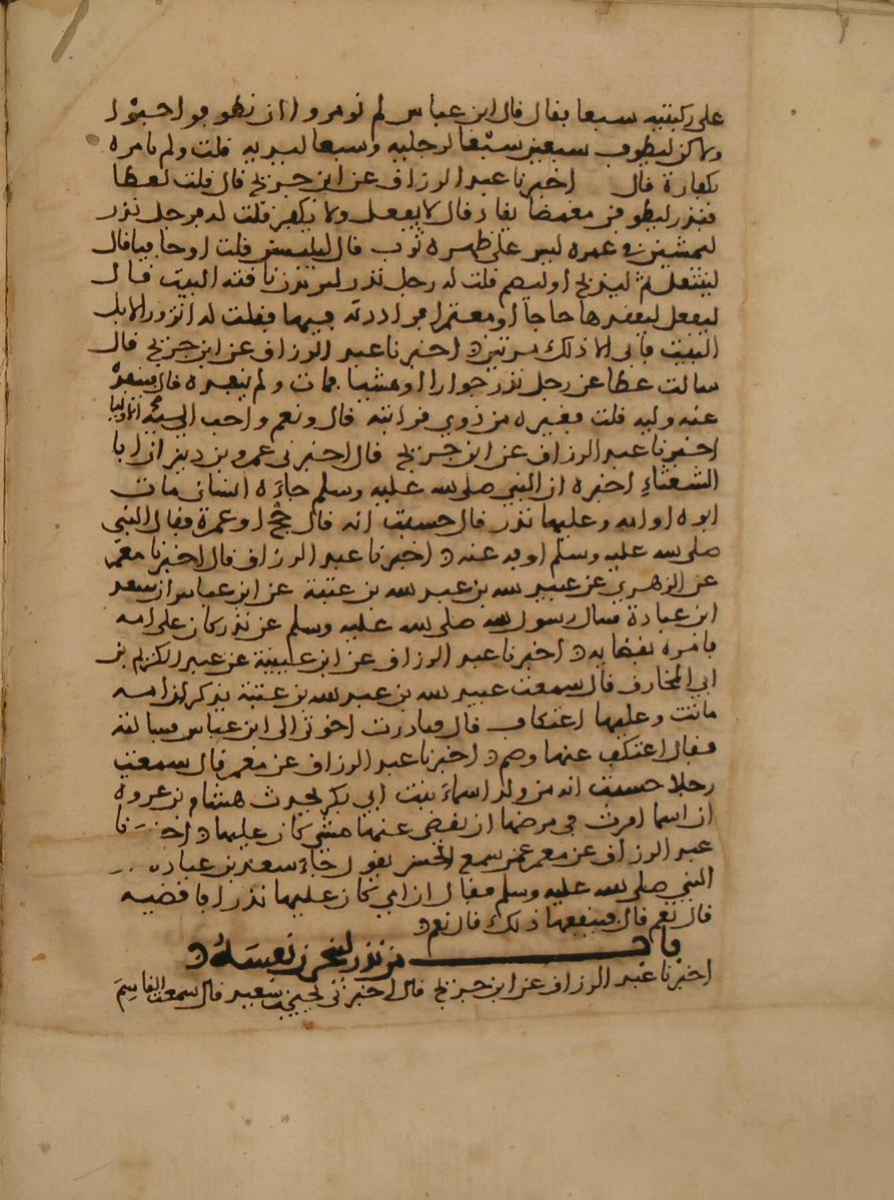 على ركبتيه سبعا فقال قال ابن عباس لم تومروا ان تطوفوا حبوا
ولاكن ليطوف سبعين سبعا لرجليه وسبعا ليديه قلت ولم يامره
بكفارة قال اخبرنا عبد الرزاق عن ابن جريج قال قلت لعطا
فنذر ليطوفن مغمضا يقاد قال لا يفعل ولا يكفر قلت له فرجل نذر
ليمشين في عمره ليس على ظهره ثوب قال ليلبس قلت او حافيا قال
لينتعل ثم لينزع او ليصم قلت له رجل نذر لياتين ناقته البيت قال
ليفعل ليعقرها حاجا او معتمرا فرادته فيها فقلت له انذر الابل
البيت فابى الا ذلك مرتين اخبرنا عبد الرزاق عن ابن جريج قال
سالت عطا عن رجل نذر جوارا او مشيا فمات ولم ينفذه قال ينفذه
عنه وليه قلت فغيره من ذوي قرابته قال ونعم واحب اليه الاوليا
اخبرنا عبد الرزاق عن ابن جريج قال اخبرني عمرو بن دينر ان ابا
الشعثاء اخبره ان النبي صلى الله عليه وسلم جاءه انسان مات
ابوه او امه وعليها نذر قال حسبت انه قال حج او عمرة فقال النبي
صلى الله عليه وسلم اوفه عنه اخبرنا عبد الرزاق قال اخبرنا معمر
عن الزهري عن عبيد الله بن عبد الله بن عتبة عن ابن عباس ان سعد
ابن عبادة سال رسول الله صلى الله عليه وسلم عن نذر كان على امه
فامره بقضايه اخبرنا عبد الرزاق عن ابن عيينة عن عبد الكريم بن
ابي المخارق قال سمعت عبيد الله بن عبد الله بن عتبة يذكر ان امه
ماتت وعليها اعتكاف قال فبادرت اخوتي الى ابن عباس فسالته
فقال اعتكف عنها وصم اخبرنا عبد الرزاق عن معمر قال سمعت
رجلا حسبت انه من ولد اسماء بنت ابي بكر يحدث هشام بن عروة
ان اسما امرت في مرضها ان يقضى عنها مشي كان عليها
عبد الرزاق عن معمر عمن سمع الحسن يقول جاء سعد بن عبادة
النبي صلى الله عليه وسلم فقال ان امي كان عليها نذر افاقضيه
قال نعم قال فينفعها ذلك قال نعم
باب من نذر لينحرن نفسه
اخبرنا عبد الرزاق عن ابن جريج قال اخبرني يحيى بن سعيد قال سمعت القاسم